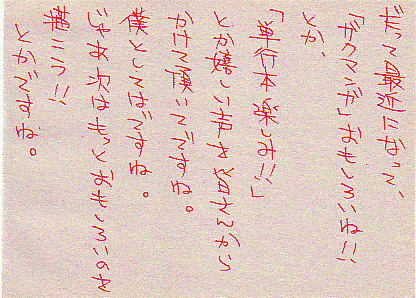 だって最近になって、
「ザクマンガ」おもしろいね!!
とか、
「単行本楽しみ!!」
とか嬉しい声を皆さんから
かけて頂いてですね。
僕としてはですね。
じゃあ次はもっとおもしろいのを
描こう!!
とかですね。